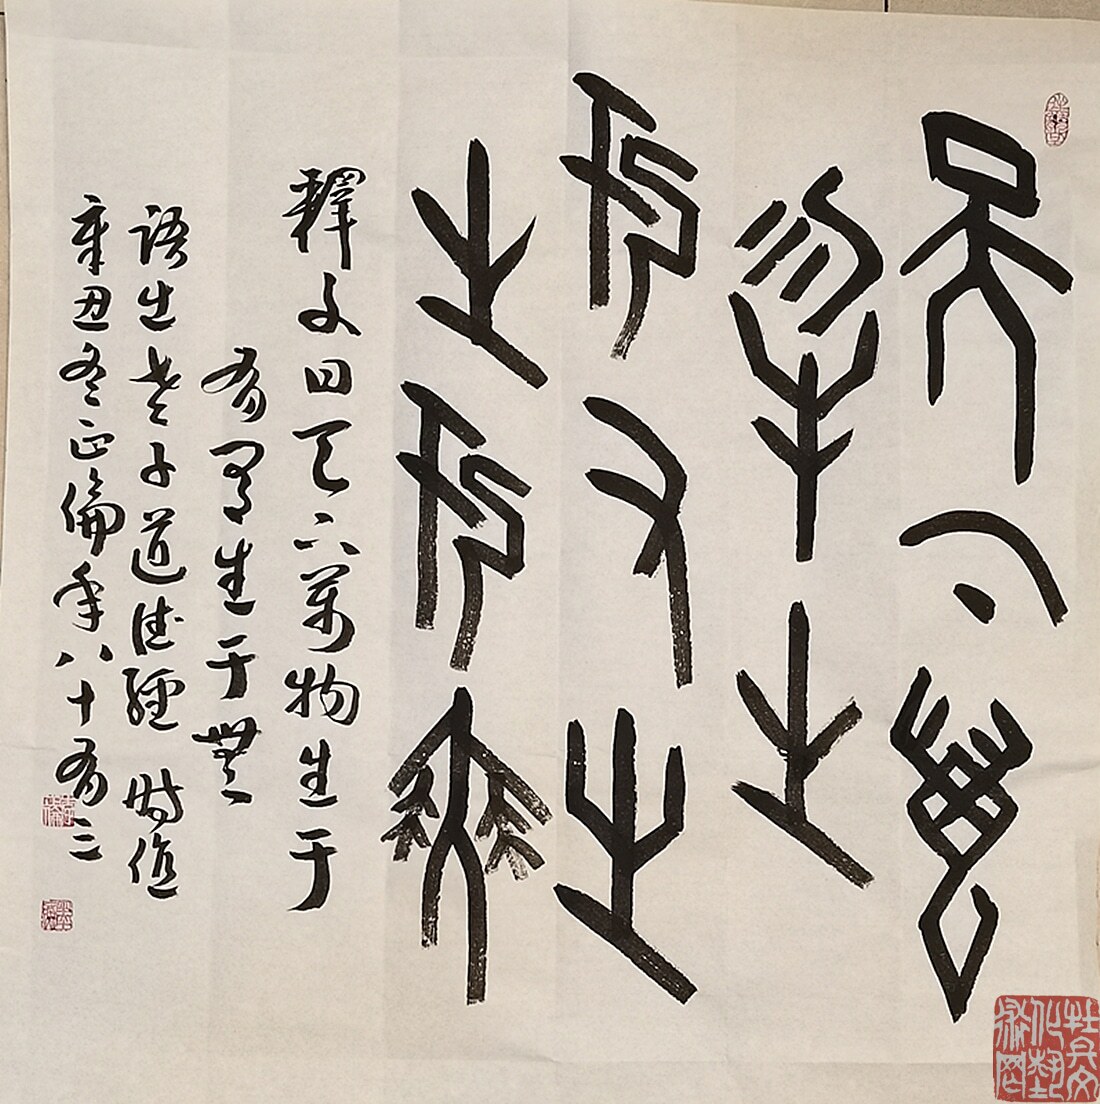 天下萬
物生
于有有
生于無
釋文曰天下萬物生于
有有生于無
語出老子道德經 時值
辛丑冬正倫年八十有三
牡丹文
化藝